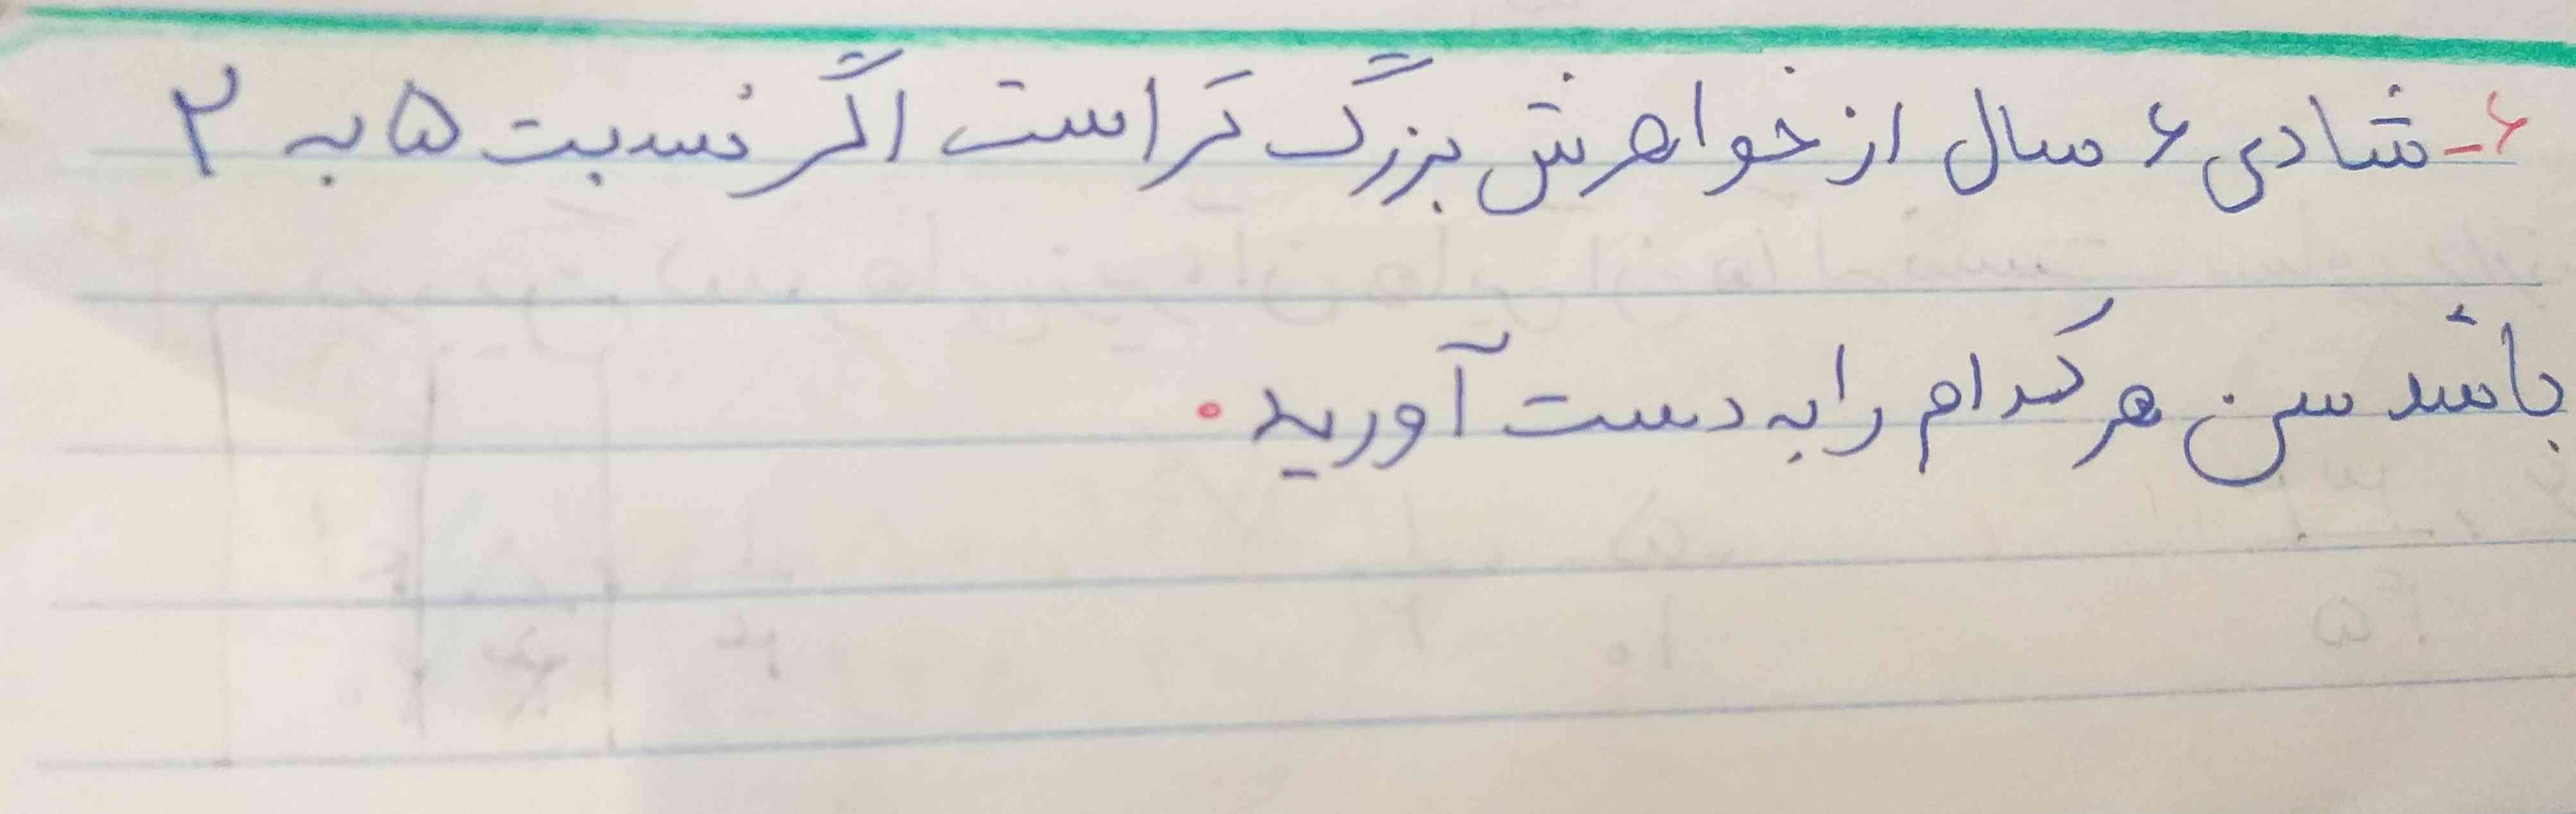 ۶- شادی ۶ سال از خواهرش بزرگ تر است اگر نسبت ۵ به ۲
باشد سن هر کدام را به دست آورید.